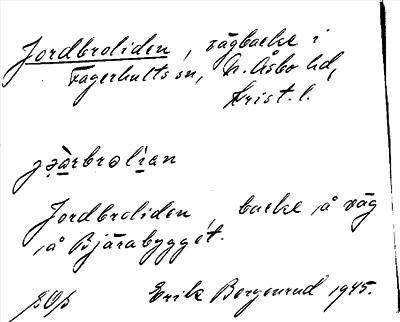 Jordbroliden, vägbacke i
Fagerhults sn, N. Åsbo hd,
Krist. l.
Jordbroliden, backe å väg
å Bjärabygget.
Erik Borgenrud 1945.